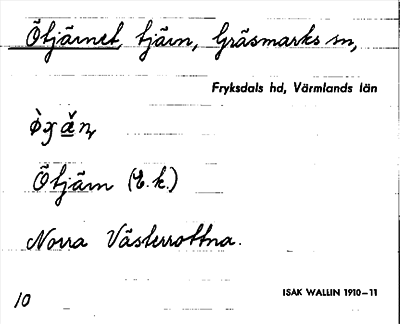 Ötjärnet, tjärn, Gräsmarks sn,
Fryksdals hd, Värmlands län
Ötjärn (E.k.)
Norra Västerrottna.
10
ISAK WALLIN 1910–11